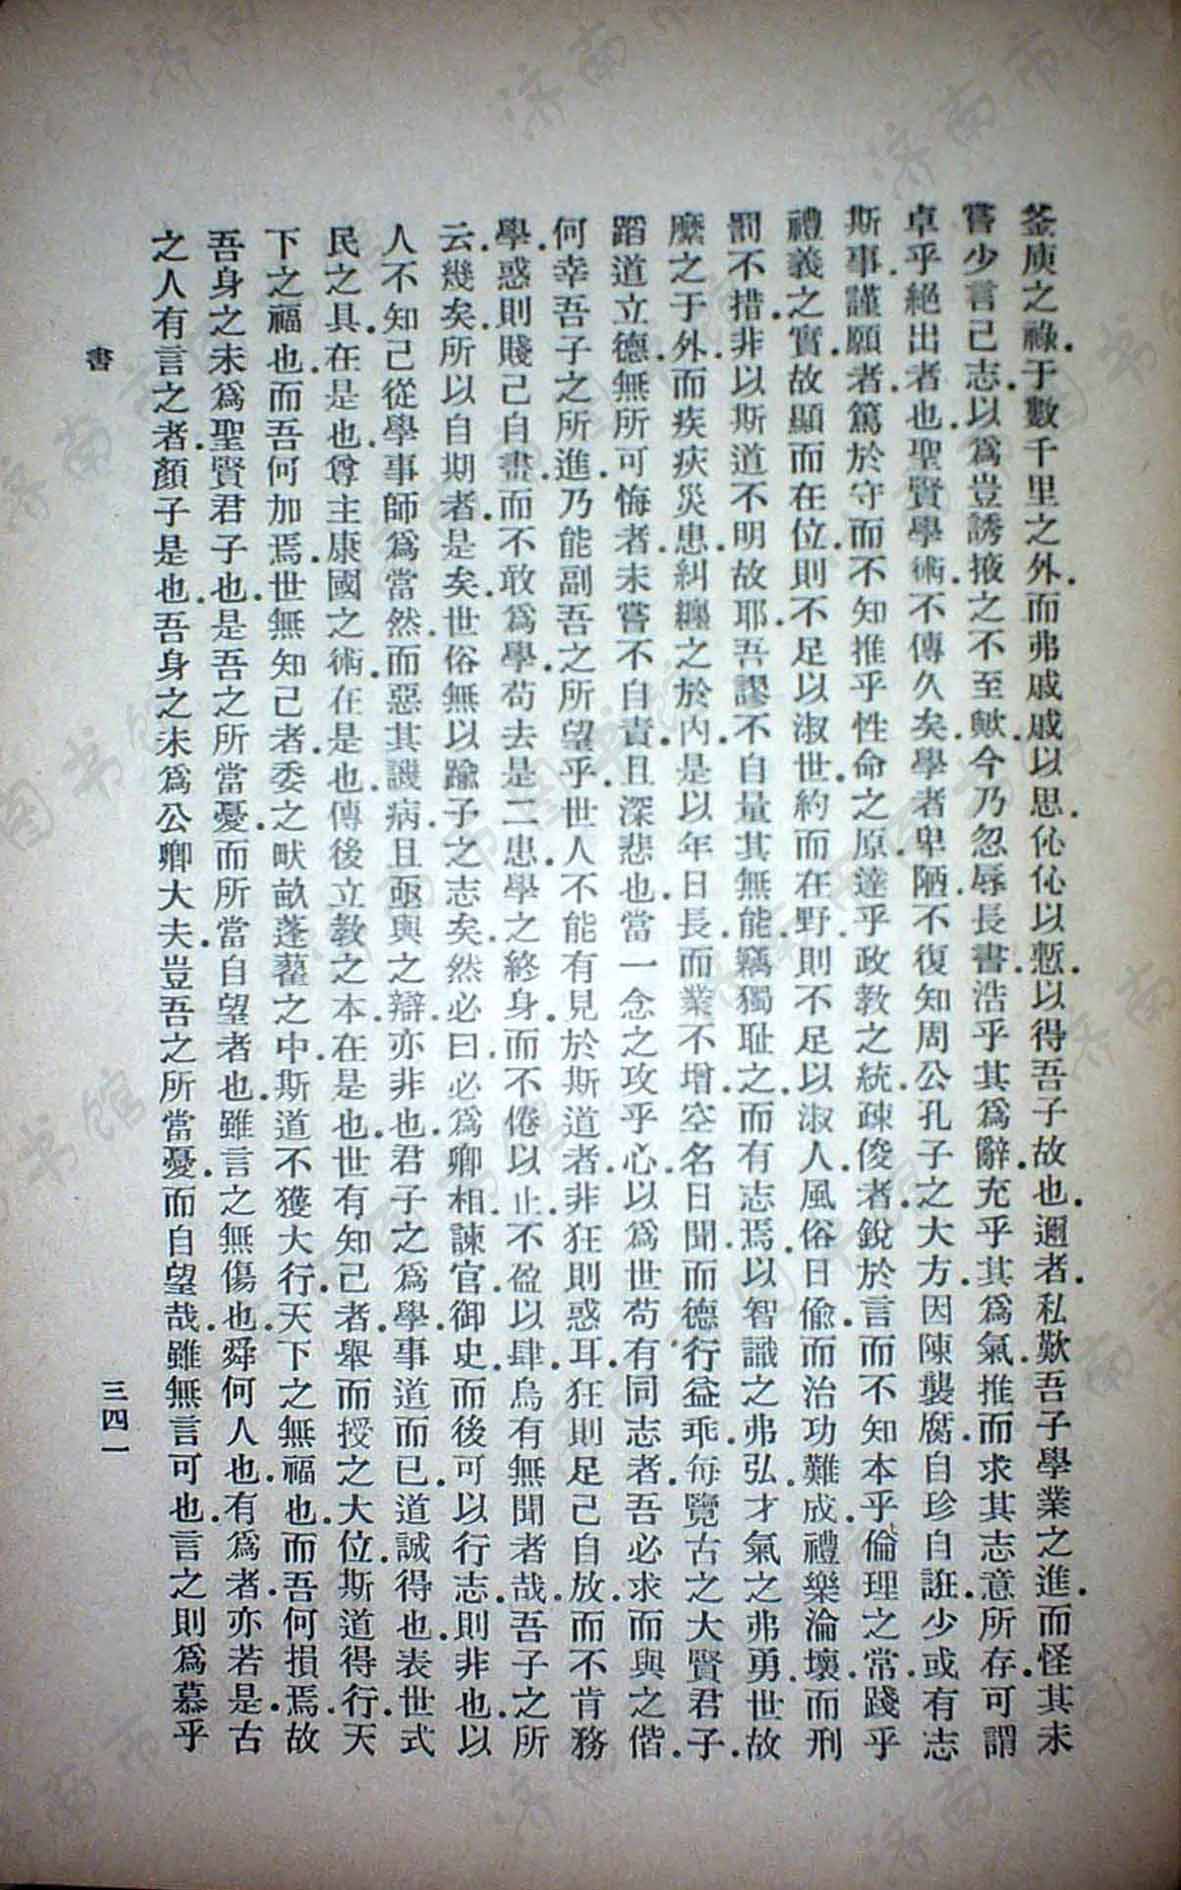 釜庾之祿.于數千里之外.而弗戚戚以思.伈伈以慙.以得吾子故也.邇者.私歎吾子學業之進.而怪其未
嘗少言己志.以爲豈誘掖之不至歟.今乃忽辱長書.浩乎其爲辭.充乎其爲氣.推而求其志意所存.可謂
卓乎絕出者也.聖賢學術.不傳久矣.學者卑陋.不復知周公孔子之大方.因陳襲腐.自珍自誑.少或有志
斯事.謹愿者.篤於守.而不知推乎性命之原.達乎政教之統.疎俊者.銳於言.而不知本乎倫理之常.踐乎
禮義之實.故顯而在位.則不足以淑世.約而在野.則不足以淑人.風俗日偷.而治功難成.禮樂淪壞.而刑
罰不措.非以斯道不明故耶.吾謬不自量其無能.竊獨恥之.而有志焉.以智識之弗弘.才氣之弗勇.世故
縻之于外.而疾疢災患.糾纏之於內.是以年日長.而業不增.空名日聞.而德行益乖.每覽古之大賢君子.
蹈道立德.無所可悔者.未嘗不自責.且深悲也.當一念之攻乎心.以爲世苟有同志者.吾必求而與之偕.
何幸吾子之所進.乃能副吾之所望乎.世人不能有見於斯道者.非狂則惑耳.狂則足己自放.而不肯務
學.惑則賤己自畫.而不敢爲學.苟去是二患.學之終身.而不倦以止.不盈以肆.烏有無聞者哉.吾子之所
云.幾矣.所以自期者.是矣.世俗無以踰子之志矣.然必曰.必爲卿相諫官御史.而後可以行志.則非也.以
人不知己.從學事師爲當然.而惡其譏病.且亟與之辯.亦非也.君子之爲學.事道而已.道誠得也.表世式
民之具.在是也.尊主康國之術.在是也.傳後立教之本.在是也.世有知己者.舉而授之大位.斯道得行.天
下之福也.而吾何加焉.世無知己者.委之畎畝蓬藋之中.斯道不獲大行.天下之無福也.而吾何損焉.故
吾身之未爲聖賢君子也.是吾之所當憂.而所當自望者也.雖言之無傷也.舜何人也.有爲者.亦若是.古
之人有言之者.顏子是也.吾身之未爲公卿大夫.豈吾之所當憂.而自望哉.雖無言可也.言之則爲慕乎
書
三四一